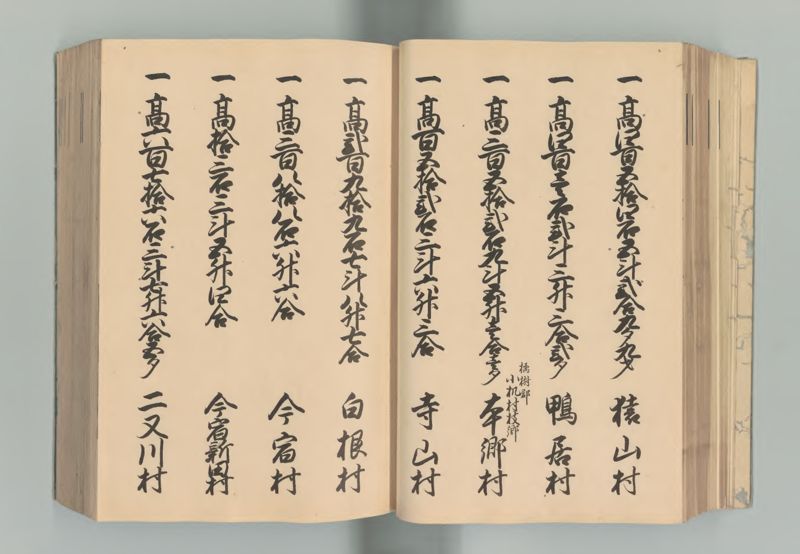 一 高四百五拾四石五斗弐合九夕九才 猿山村
一 高四百壱石弐斗三升三合弐夕 鴨居村
橘樹郡
小机村枝郷
一 高三百五拾弐石九斗五升壱合壱夕 本郷村
一 高百五拾弐石三斗六升三合 寺山村
一 高弐百九拾九石七斗八升七合 白根村
一 高三百八拾八石六升六合 今宿村
一 高拾三石三斗五升四合 今宿新田村
一 高六百七拾六石三斗七升六合 二又川村